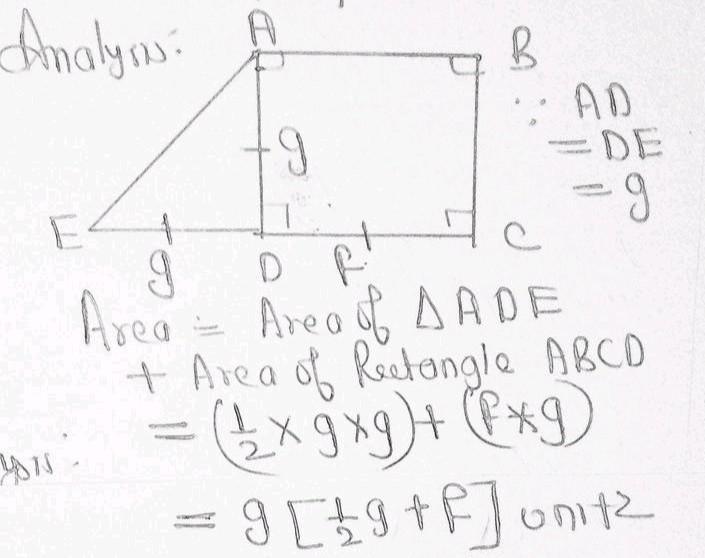 Analysis:
A
B
∵ AD
= DE
= g
g
E
g
D
f
C
Area = Area of Δ ADE
+ Area of Rectangle ABCD
= (1/2 × g × g) + (f * g)
= g [1/2 g + f] unit2